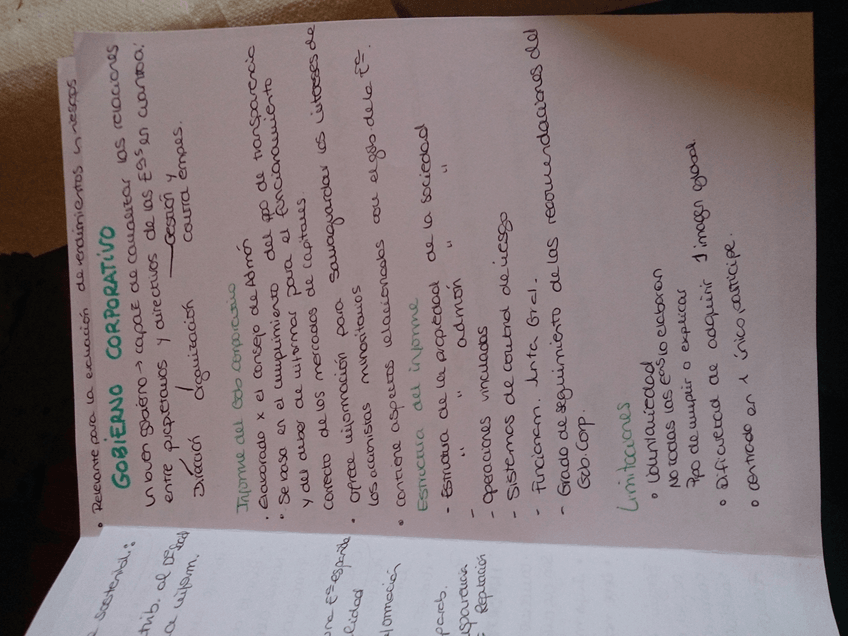 • Relevante para la evaluación de rendimientos y riesgos
GOBIERNO CORPORATIVO
Un buen gobierno → capaz de canalizar las relaciones
entre propietarios y directivos de las Eºs en cuanto a:
Dirección organización Gestión y
control empres.
Informe del Gob corporativo
• Elaborado x el consejo de Admón
• Se basa en el cumplimiento del ppo de transparencia
y del deber de informar para el funcionamiento
correcto de los mercados de capitales.
• Ofrece información para salvaguardar los intereses de
los accionistas minoritarios
• Contiene aspectos relacionados con el gob de la Eº.
Estructura del informe
- Estructura de la propiedad de la sociedad
- " " admón " "
- Operaciones vinculadas
- Sistemas de control de riesgo
- Funcionam. Junta Gral.
- Grado de seguimiento de las recomendaciones del
Gob. Corp.
Limitaciones
• Voluntariedad
No todas las Eºs lo elaboran
Ppo de cumplir o explicar
• Dificultad de adquirir 1 imagen global
• Centrado en 1 único partícipe.
sostenibil.:
trib. al
a inform.
lidad
formación
parab.
Reputación